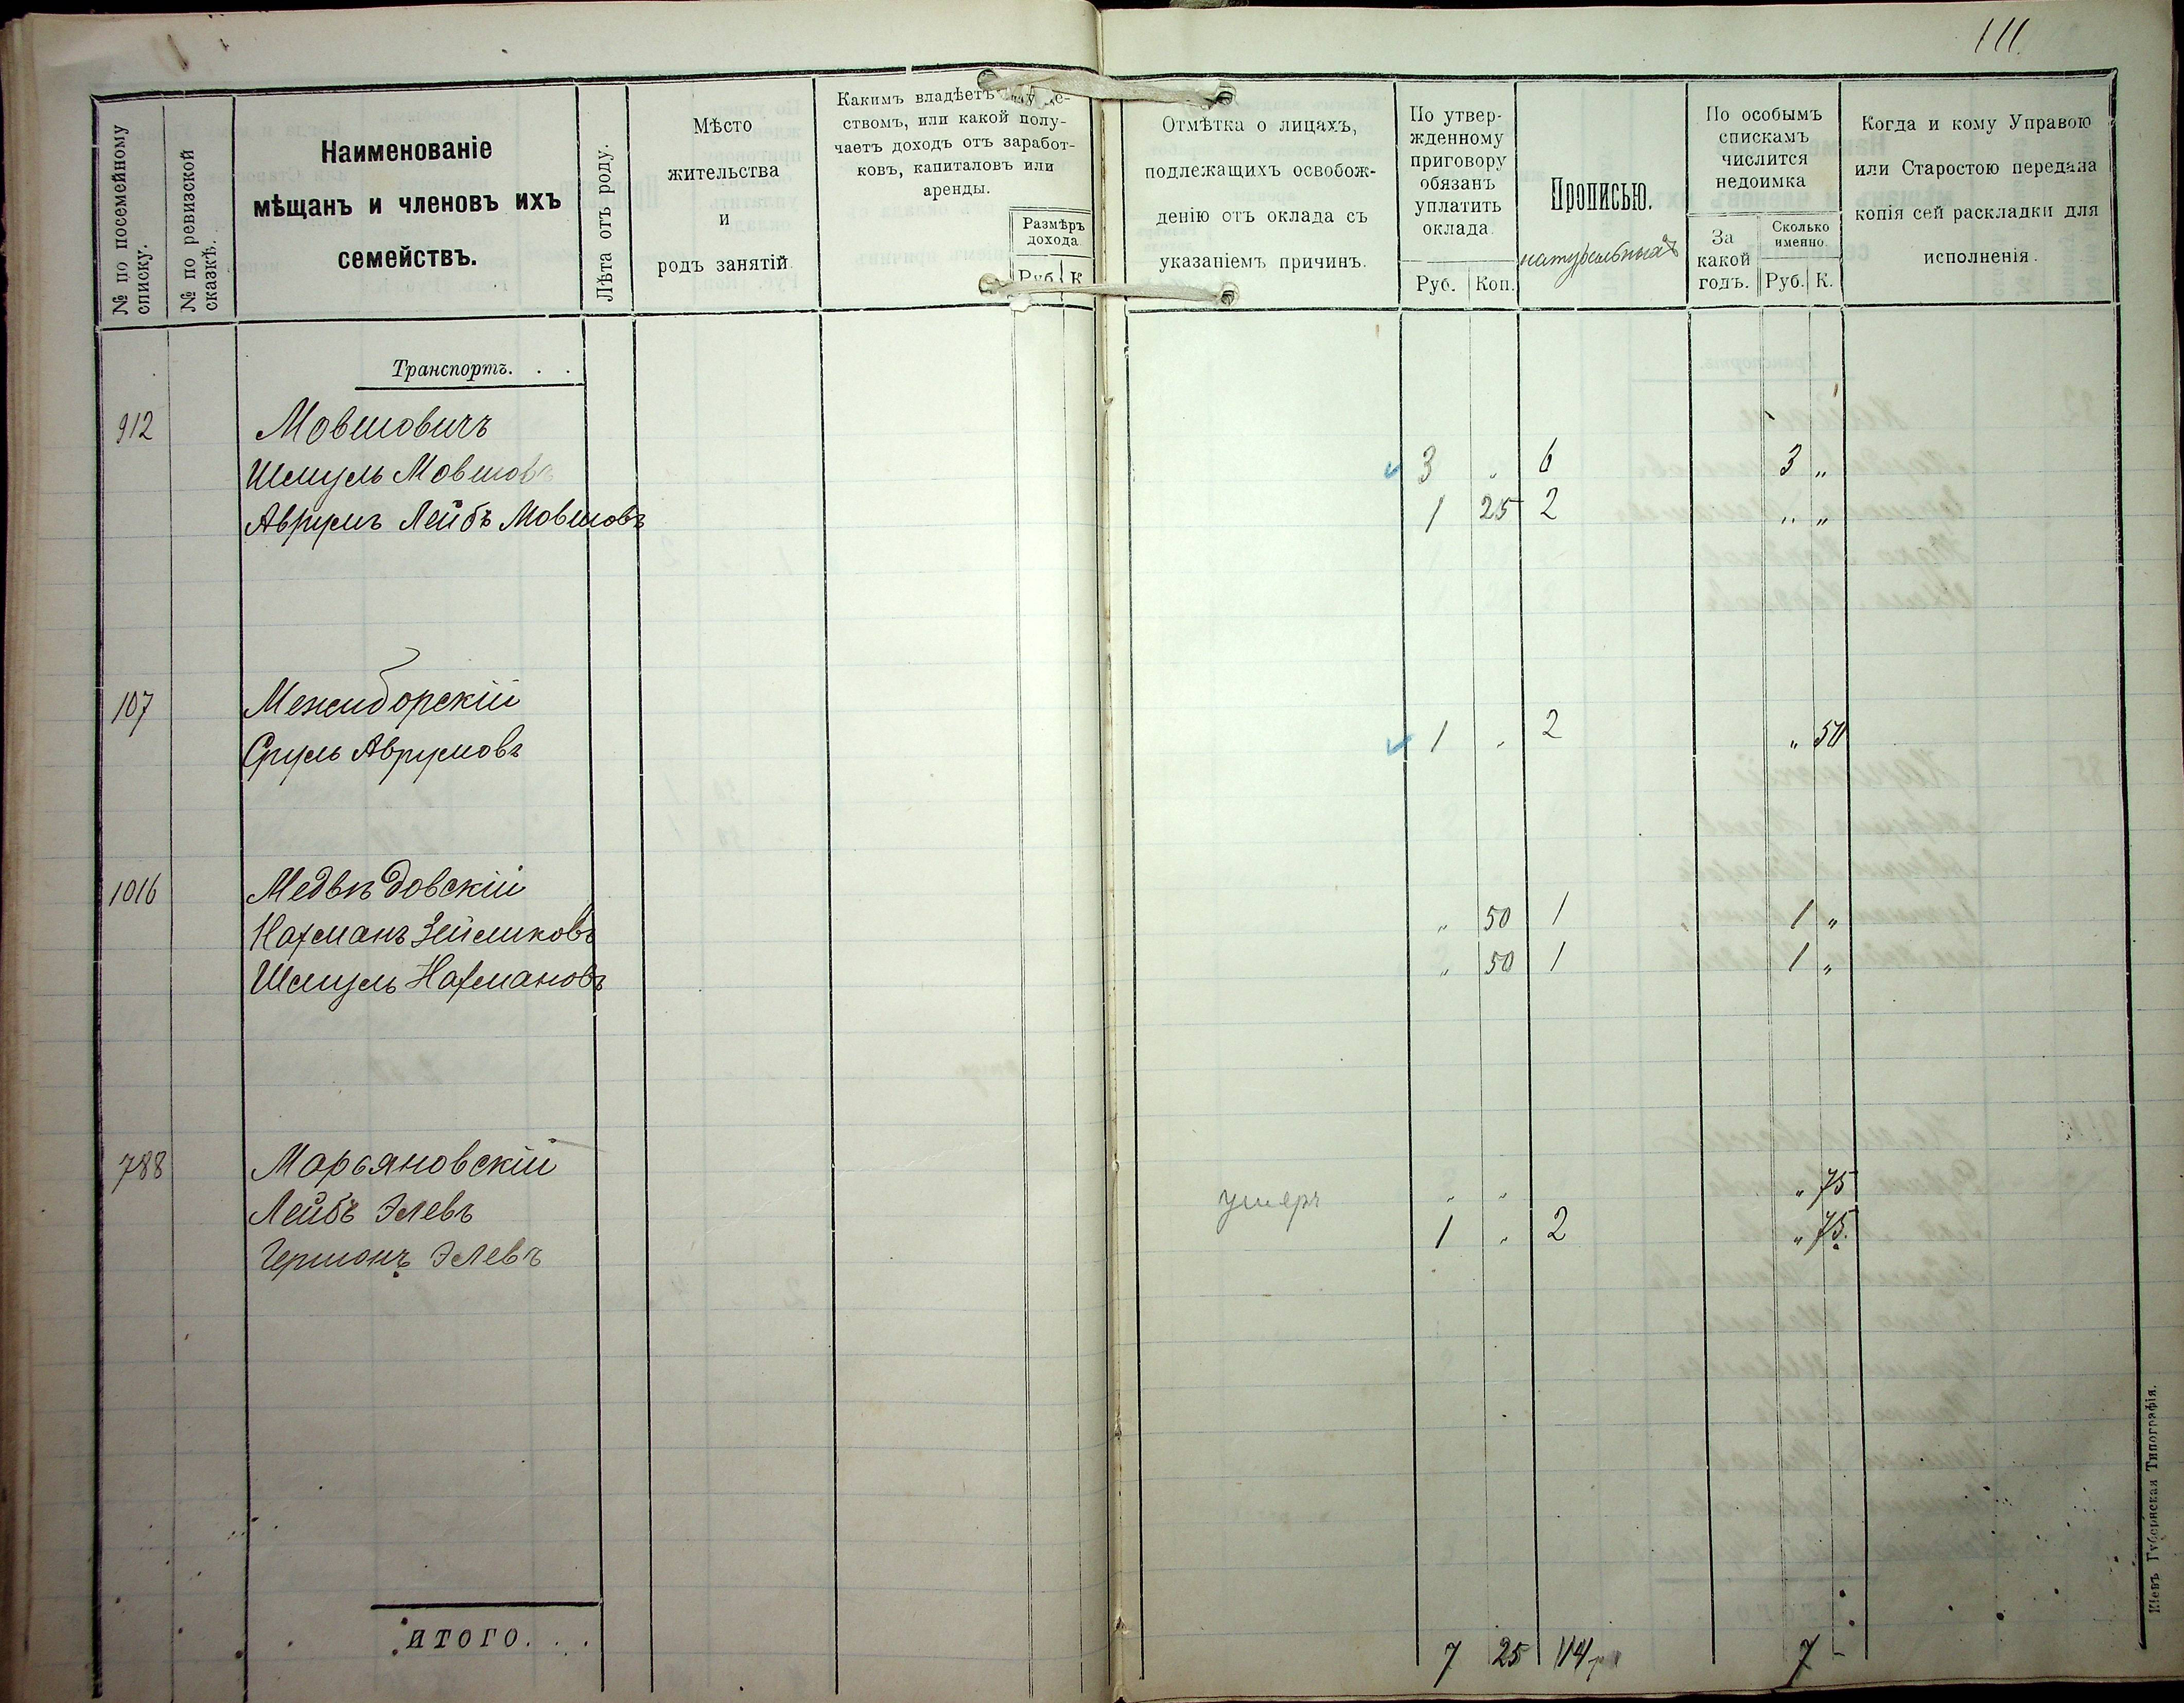 111.
№ по посемейному списку.
№ по ревизской сказкѣ.
Наименованіе
мѣщанъ и членовъ ихъ
семействъ.
Лѣта отъ роду.
Мѣсто
жительства
и
родъ занятій
Какимъ владѣетъ
ствомъ, или какой полу-
чаетъ доходъ отъ заработ-
ковъ, капиталовъ или
аренды.
Размѣръ
дохода
Руб. К
Отмѣтка о лицахъ,
подлежащихъ освобож-
денію отъ оклада съ
указаніемъ причинъ.
По утвер-
жденному
приговору
обязанъ
уплатить
оклада
Руб. Коп.
Прописью.
По особымъ
спискамъ
числится
недоимка
За
какой
годъ.
Сколько
именно
Руб. К.
Когда и кому Управою
или Старостою передана
копія сей раскладки для
исполненія.
Транспортъ. . .
912 Мовшовичъ
Шмуль Мовшовъ 3 „ 6 3 „
Аврумъ Лейбъ Мовшовъ 1 25 2 „ „
107 Межиборскій
Сруль Аврумовъ 1 „ 2 „ 50
1016 Медвѣдовскій
Нахманъ Зейликовъ „ 50 1 1 „
Шмуль Нахмановъ „ 50 1 1 „
788 Марьяновскій
Лейбъ Элевъ умеръ „ „ „ 75
Гершонъ Элевъ 1 „ 2 „ 75.
ИТОГО. . . 7 25 14 7 -
Кіевъ Губернская Типографія.